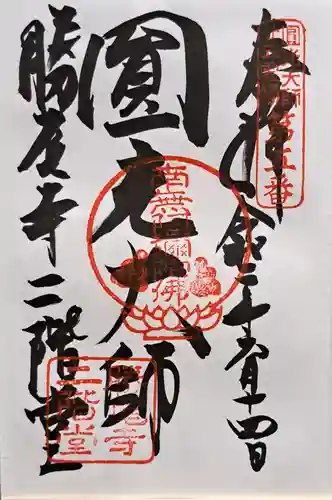 奉拝
令和二年六月十四日
圓光大師
勝尾寺二階堂
圓光大師第五番
南無阿弥陀佛
勝尾寺
二階堂